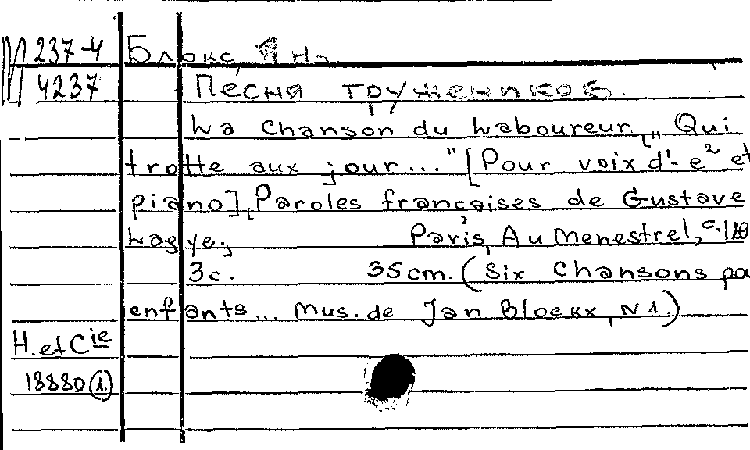 М 237-4 Блокс, Ян
4237 Песня тружеников.
La chanson du Laboureur, „Qui
trotte aux jour..." [Pour voix d'-e² et
piano]. Paroles françaises de Gustave
Lagye. Paris, Au Menestrel,
3с. 35cm. (Six chansons po
enfants... Mus. de Jan Bloekx, N 1.)
H. et Cie
18880 (1.)